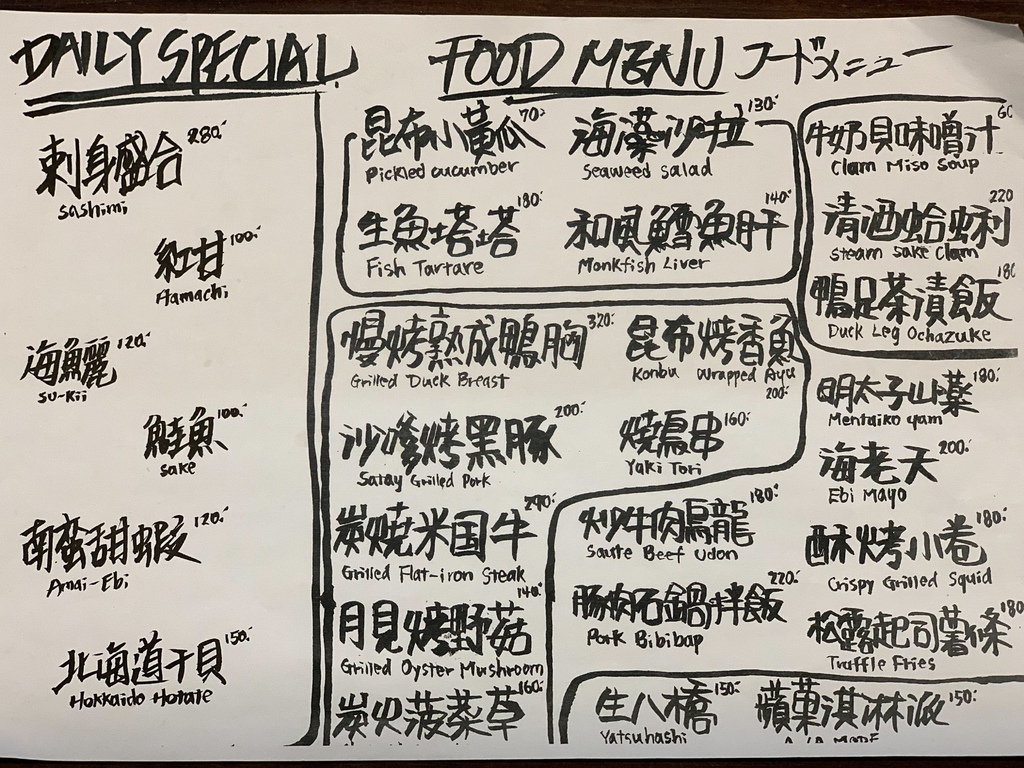 DAILY SPECIAL
刺身盛合 280.-
Sashimi
紅甘 100.-
Hamachi
海魚麗 120.-
Su-Kii
鮭魚 100.-
Sake
南蛮甜蝦 120.-
Amai-Ebi
北海道干貝 150.-
Hokkaido Hotate
FOOD MENU フードメニュー
昆布小黃瓜 70.-
Pickled cucumber
海藻沙拉 130.-
Seaweed salad
生魚塔塔 180.-
Fish Tartare
和風鱈魚肝 140.-
Monkfish Liver
慢烤熟成鴨胸 320.-
Grilled Duck Breast
昆布烤香魚
Konbu Wrapped Ayu
200.-
沙嗲烤黑豚 200.-
Satay Grilled Pork
燒鳥串 160.-
Yaki Tori
炭燒米国牛 290.-
Grilled Flat-iron Steak
月見烤野菇 140.-
Grilled Oyster Mushroom
炭火菠菜草 160.-
炒牛肉烏龍 180.-
Saute Beef Udon
豚肉石鍋拌飯 220.-
Pork Bibibap
牛奶貝味噌汁
Clam Miso Soup
清酒蛤蜊 220
Steam Sake Clam
鴨足茶漬飯 180
Duck Leg Ochazuke
明太子山藥 180.-
Mentaiko yam
海老天 200.-
Ebi Mayo
酥烤小卷 180.-
Crispy Grilled Squid
松露起司薯條 180
Truffle Fries
生八橋 150.-
Yatsuhashi
蘋菓淇淋派 150.-